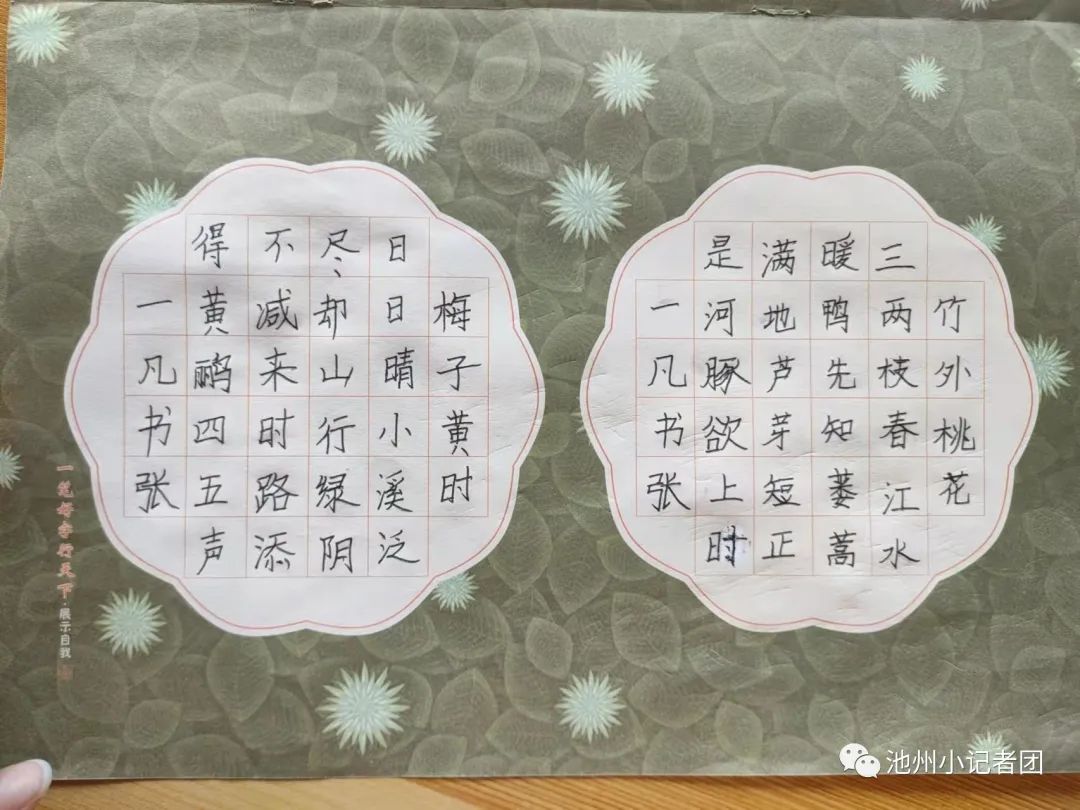 竹外桃花
三两枝春江水
暖鸭先知蒌蒿
满地芦芽短正
是河豚欲上时
一凡书张
梅子黄时
日日晴小溪泛
尽却山行绿阴
不减来时路添
得黄鹂四五声
一凡书张
一笔好字行天下·展示自我
池州小记者团